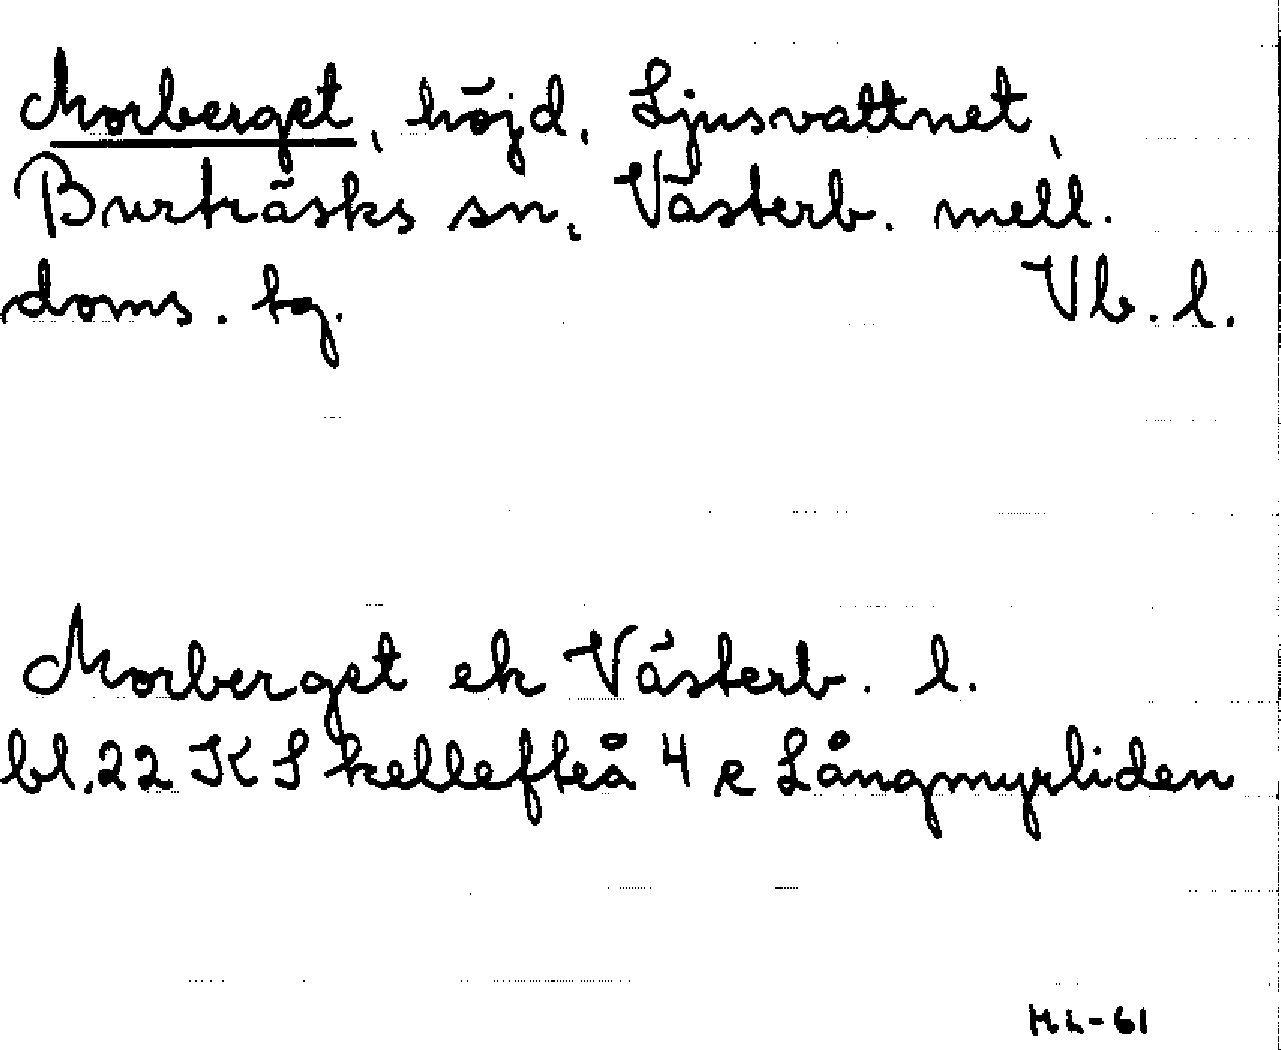 Morberget, höjd, Ljusvattnet,
Burträsks sn, Västerb. mell.
doms. tg. Vb. l.
Morberget ek Västerb. l.
bl. 22 K Skellefteå 4 e Långmyrliden
HL-61